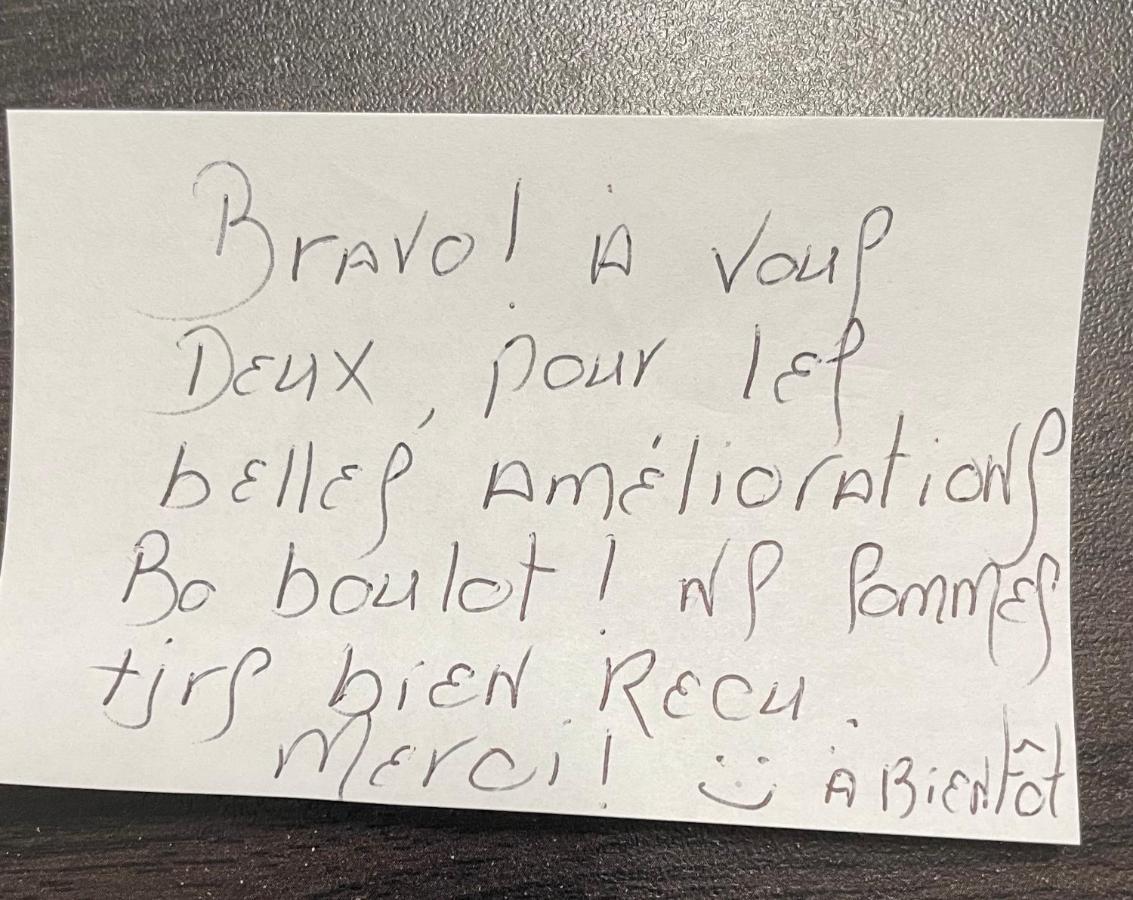 Bravo! à vous
Deux, pour les
belles améliorations
Bo boulot! NS sommes
tjrs bien Recu.
Merci! :) à Bientôt